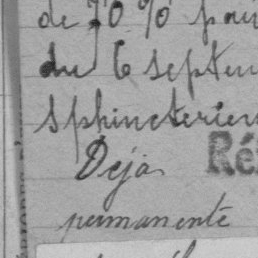 de 70 % pour
du 6 septem
sphincterien
Déjà
Ré
permanente